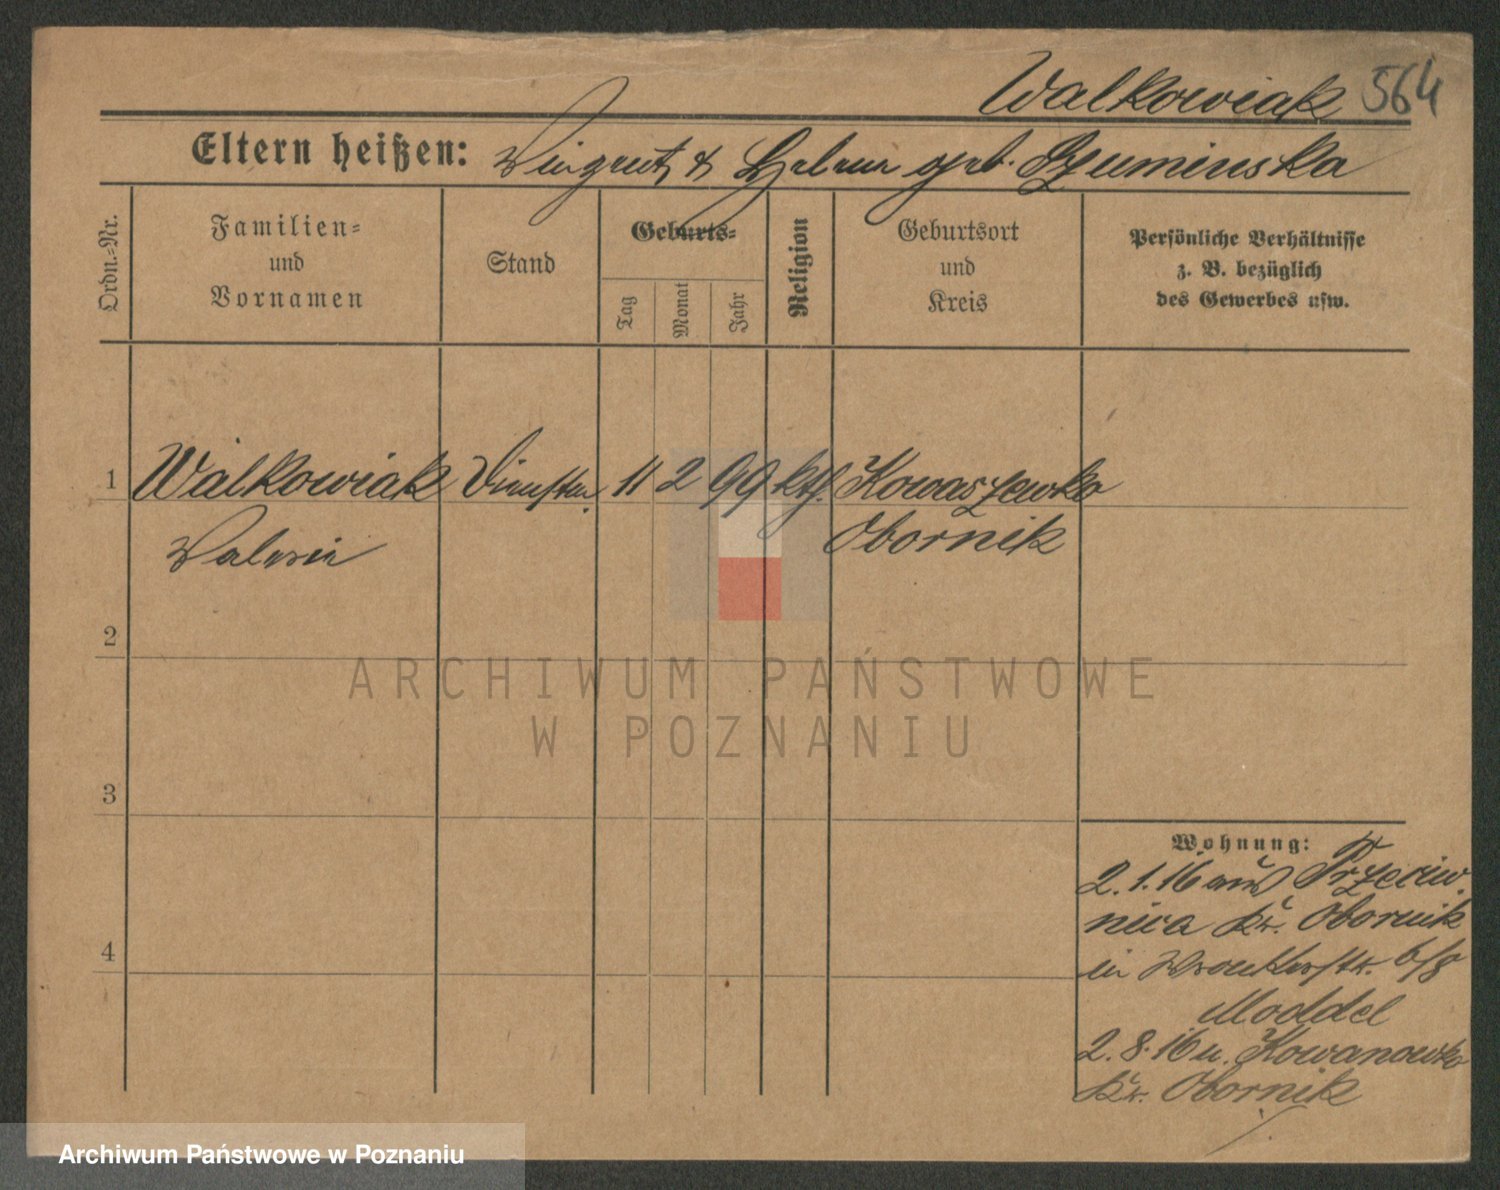 Walkowiak 564
Eltern heißen: Vinzent & Helene geb. Szuminska
Ordn.-Nr.
Familien-
und
Vornamen
Stand
Geburts-
Tag
Monat
Jahr
Religion
Geburtsort
und
Kreis
Persönliche Verhältnisse
z. B. bezüglich
des Gewerbes usw.
1 Walkowiak Dienstm. 11 2 99 kth. Kowaszewko
Valerie Obornik
2
3
4
Wohnung:
2.1.16 aus Przeciw-
nica Kr. Obornik
in Wronkerstr. 6/8
Moddel
2.8.16 n. Kowanowko
Kr. Obornik
ARCHIWUM PAŃSTWOWE
W POZNANIU
Archiwum Państwowe w Poznaniu